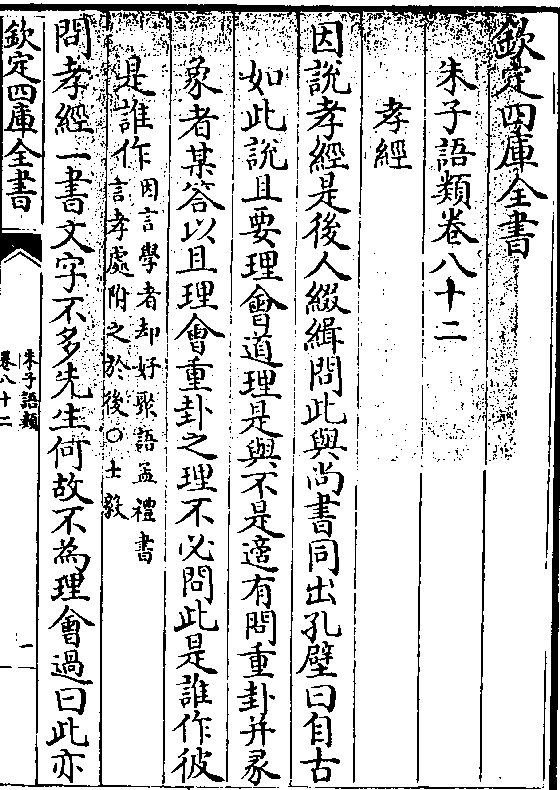 欽定四庫全書
朱子語類卷八十二
孝經
因説孝經是後人綴緝問此與尚書同出孔壁曰自古
如此説且要理會道理是與不是適有問重卦并彖
象者某答以且理會重卦之理不必問此是誰作彼
是誰作因言學者却好聚語孟禮書
言孝處附之於後○士毅
問孝經一書文字不多先生何故不為理會過曰此亦
欽定四庫全書
朱子語類
卷八十二
一